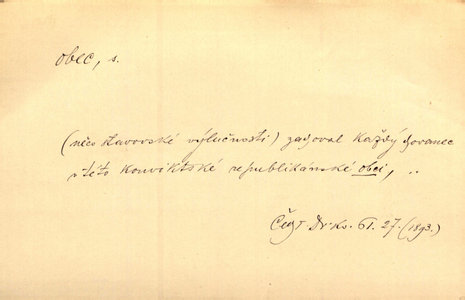 obec, s.
(něco stavovské výlučnosti) zachoval každý chovanec
v této konviktské republikánské obci, ..
Čech Dr. Kv. 61. 27. (1893.)